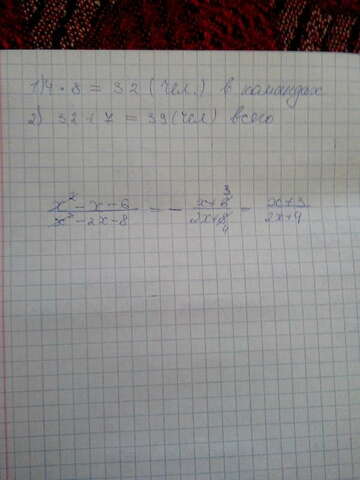 1) 4 * 8 = 32 (чел.) в командах
2) 32 + 7 = 39 (чел) всего
x² - x - 6 / x² - 2x - 8 = - x + 6 3 / 2x + 8 4 = x + 3 / 2x + 4